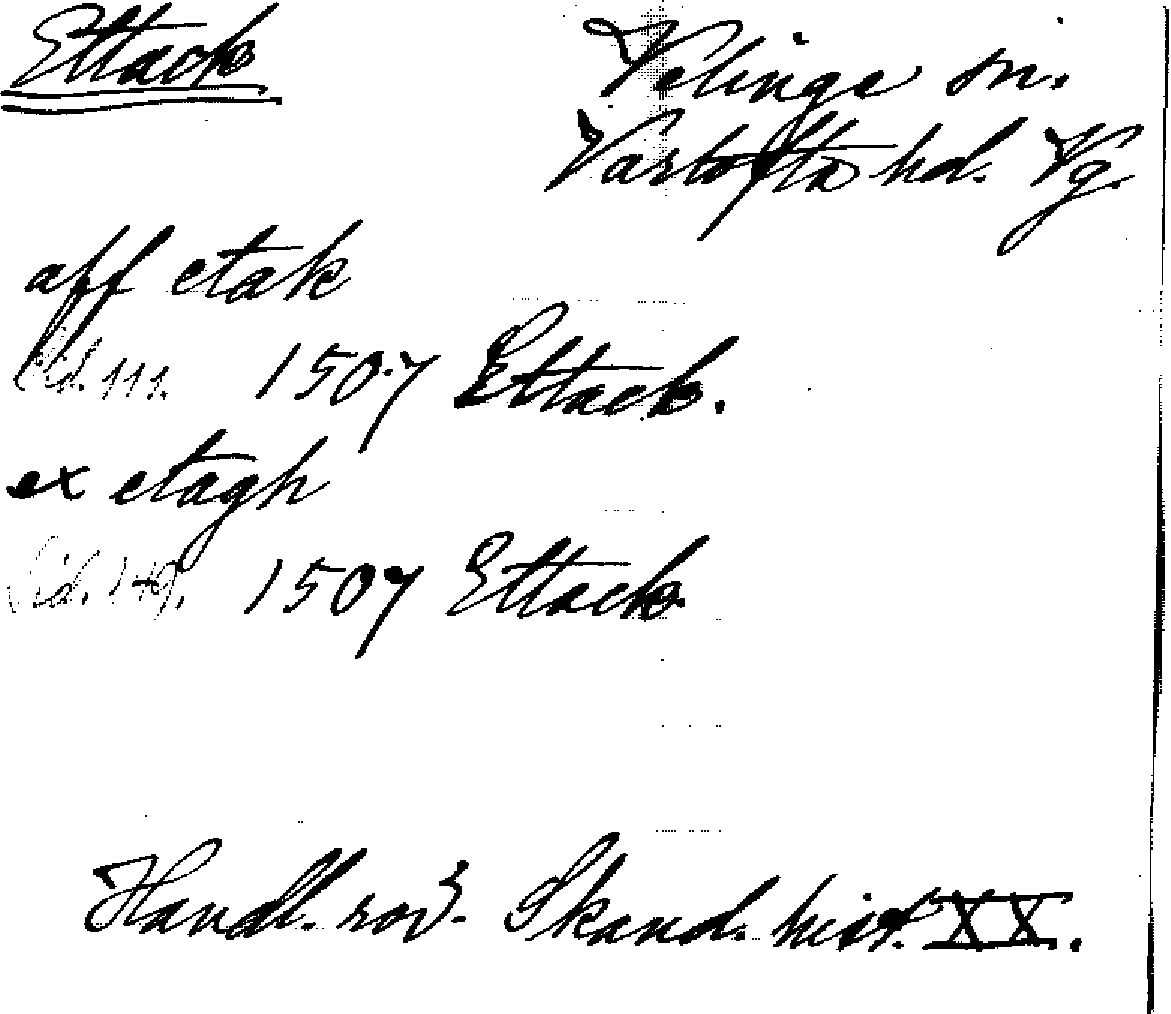 Ettack
Velinge sn.
Vartofta hd. Vg.
aff etak
Sid. 111. 1507 Ettack.
ex etagh
Sid. 149. 1507 Ettack.
Handl. rör. Skand. hist. XX.